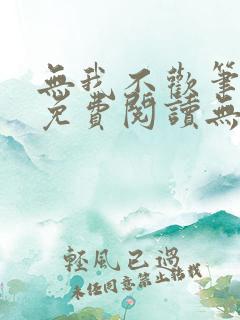 無我不歡筆
免費閱讀無
輕風已過
未經同意禁止轉載